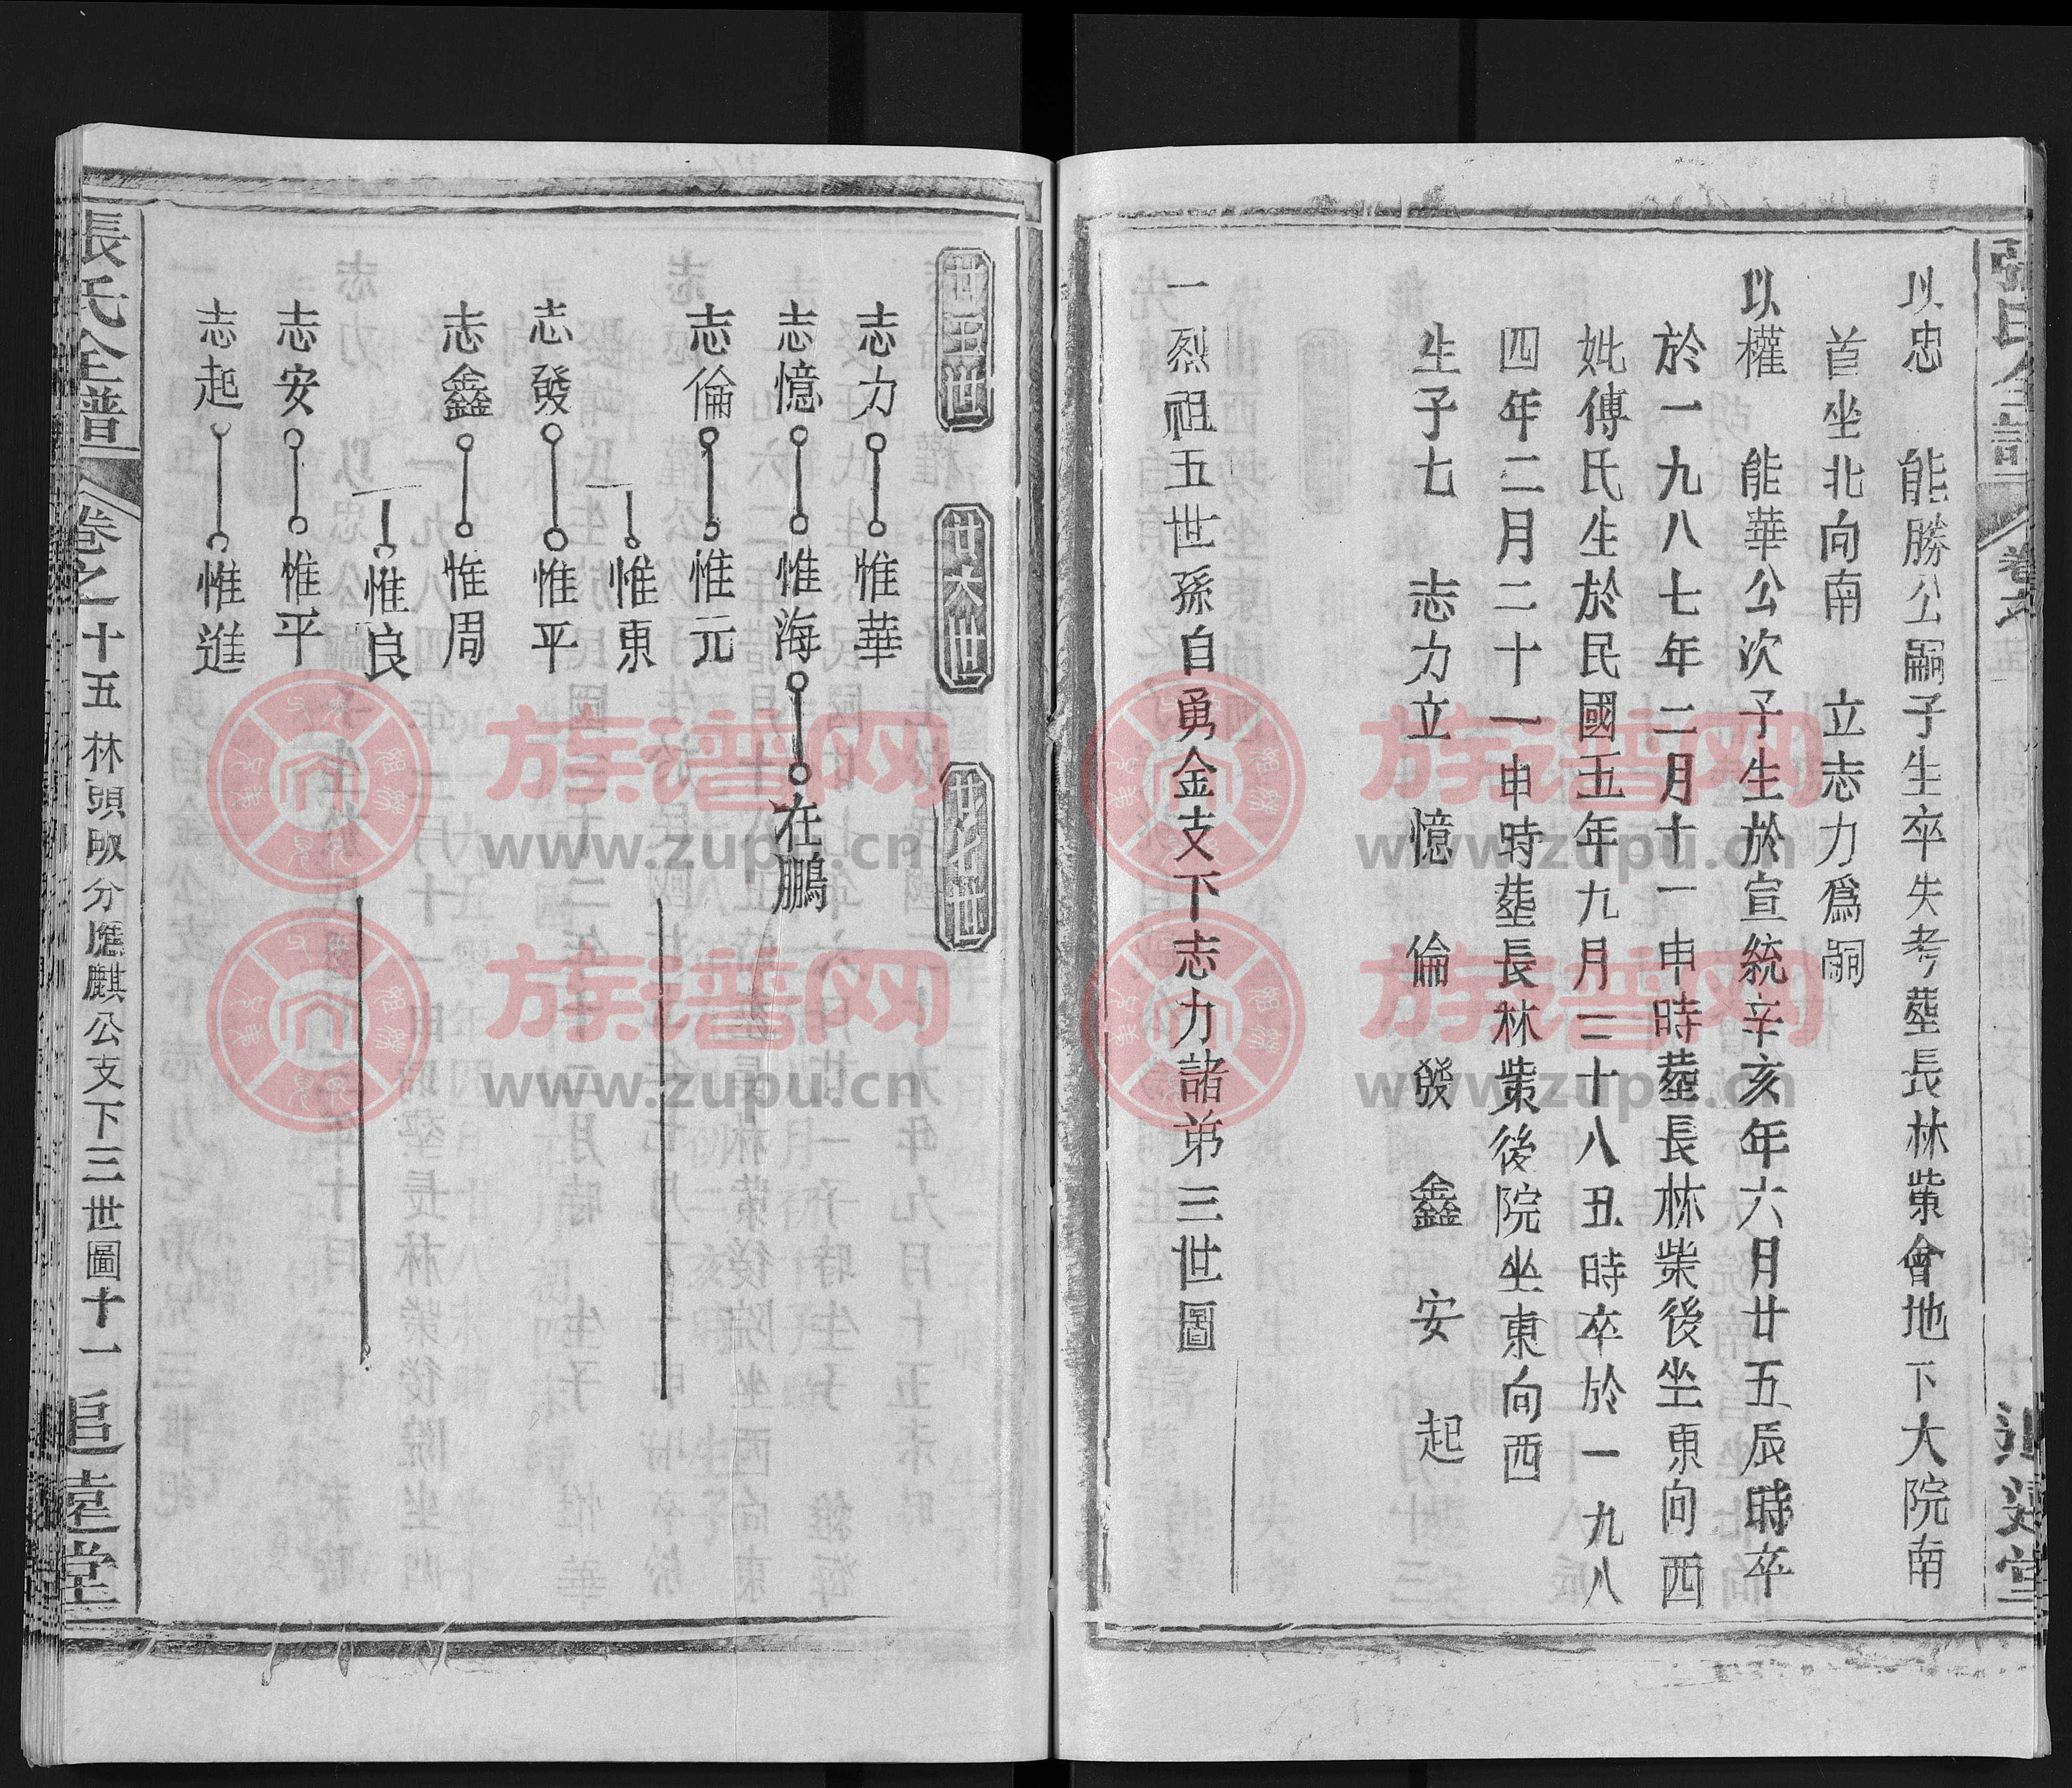 以忠 能勝公嗣子生卒失考塟長林柴會地下大院南
首坐北向南 立志力爲嗣
以權 能華公次子生於宣統辛亥年六月廿五辰時卒
於一九八七年二月十一申時塟長林柴後坐東向西
妣傅氏生於民國五年九月二十八丑時卒於一九八
四年二月二十一申時塟長林柴後院坐東向西
生子七 志力立 憶 倫 發 鑫 安 起
一烈祖五世孫自勇金支下志力諸弟三世圖
廿五世 廿六世 廿七世
志力 惟華
志憶 惟海 在鵬
志倫 惟元
惟東
志發 惟平
志鑫 惟周
惟良
志安 惟平
志起 惟進
張氏全譜 卷之十五 林頭畈分應麒公支下三世圖 十一 追遠堂
族谱网
www.zupu.cn
族谱网
www.zupu.cn
族谱网
www.zupu.cn
族谱网
www.zupu.cn